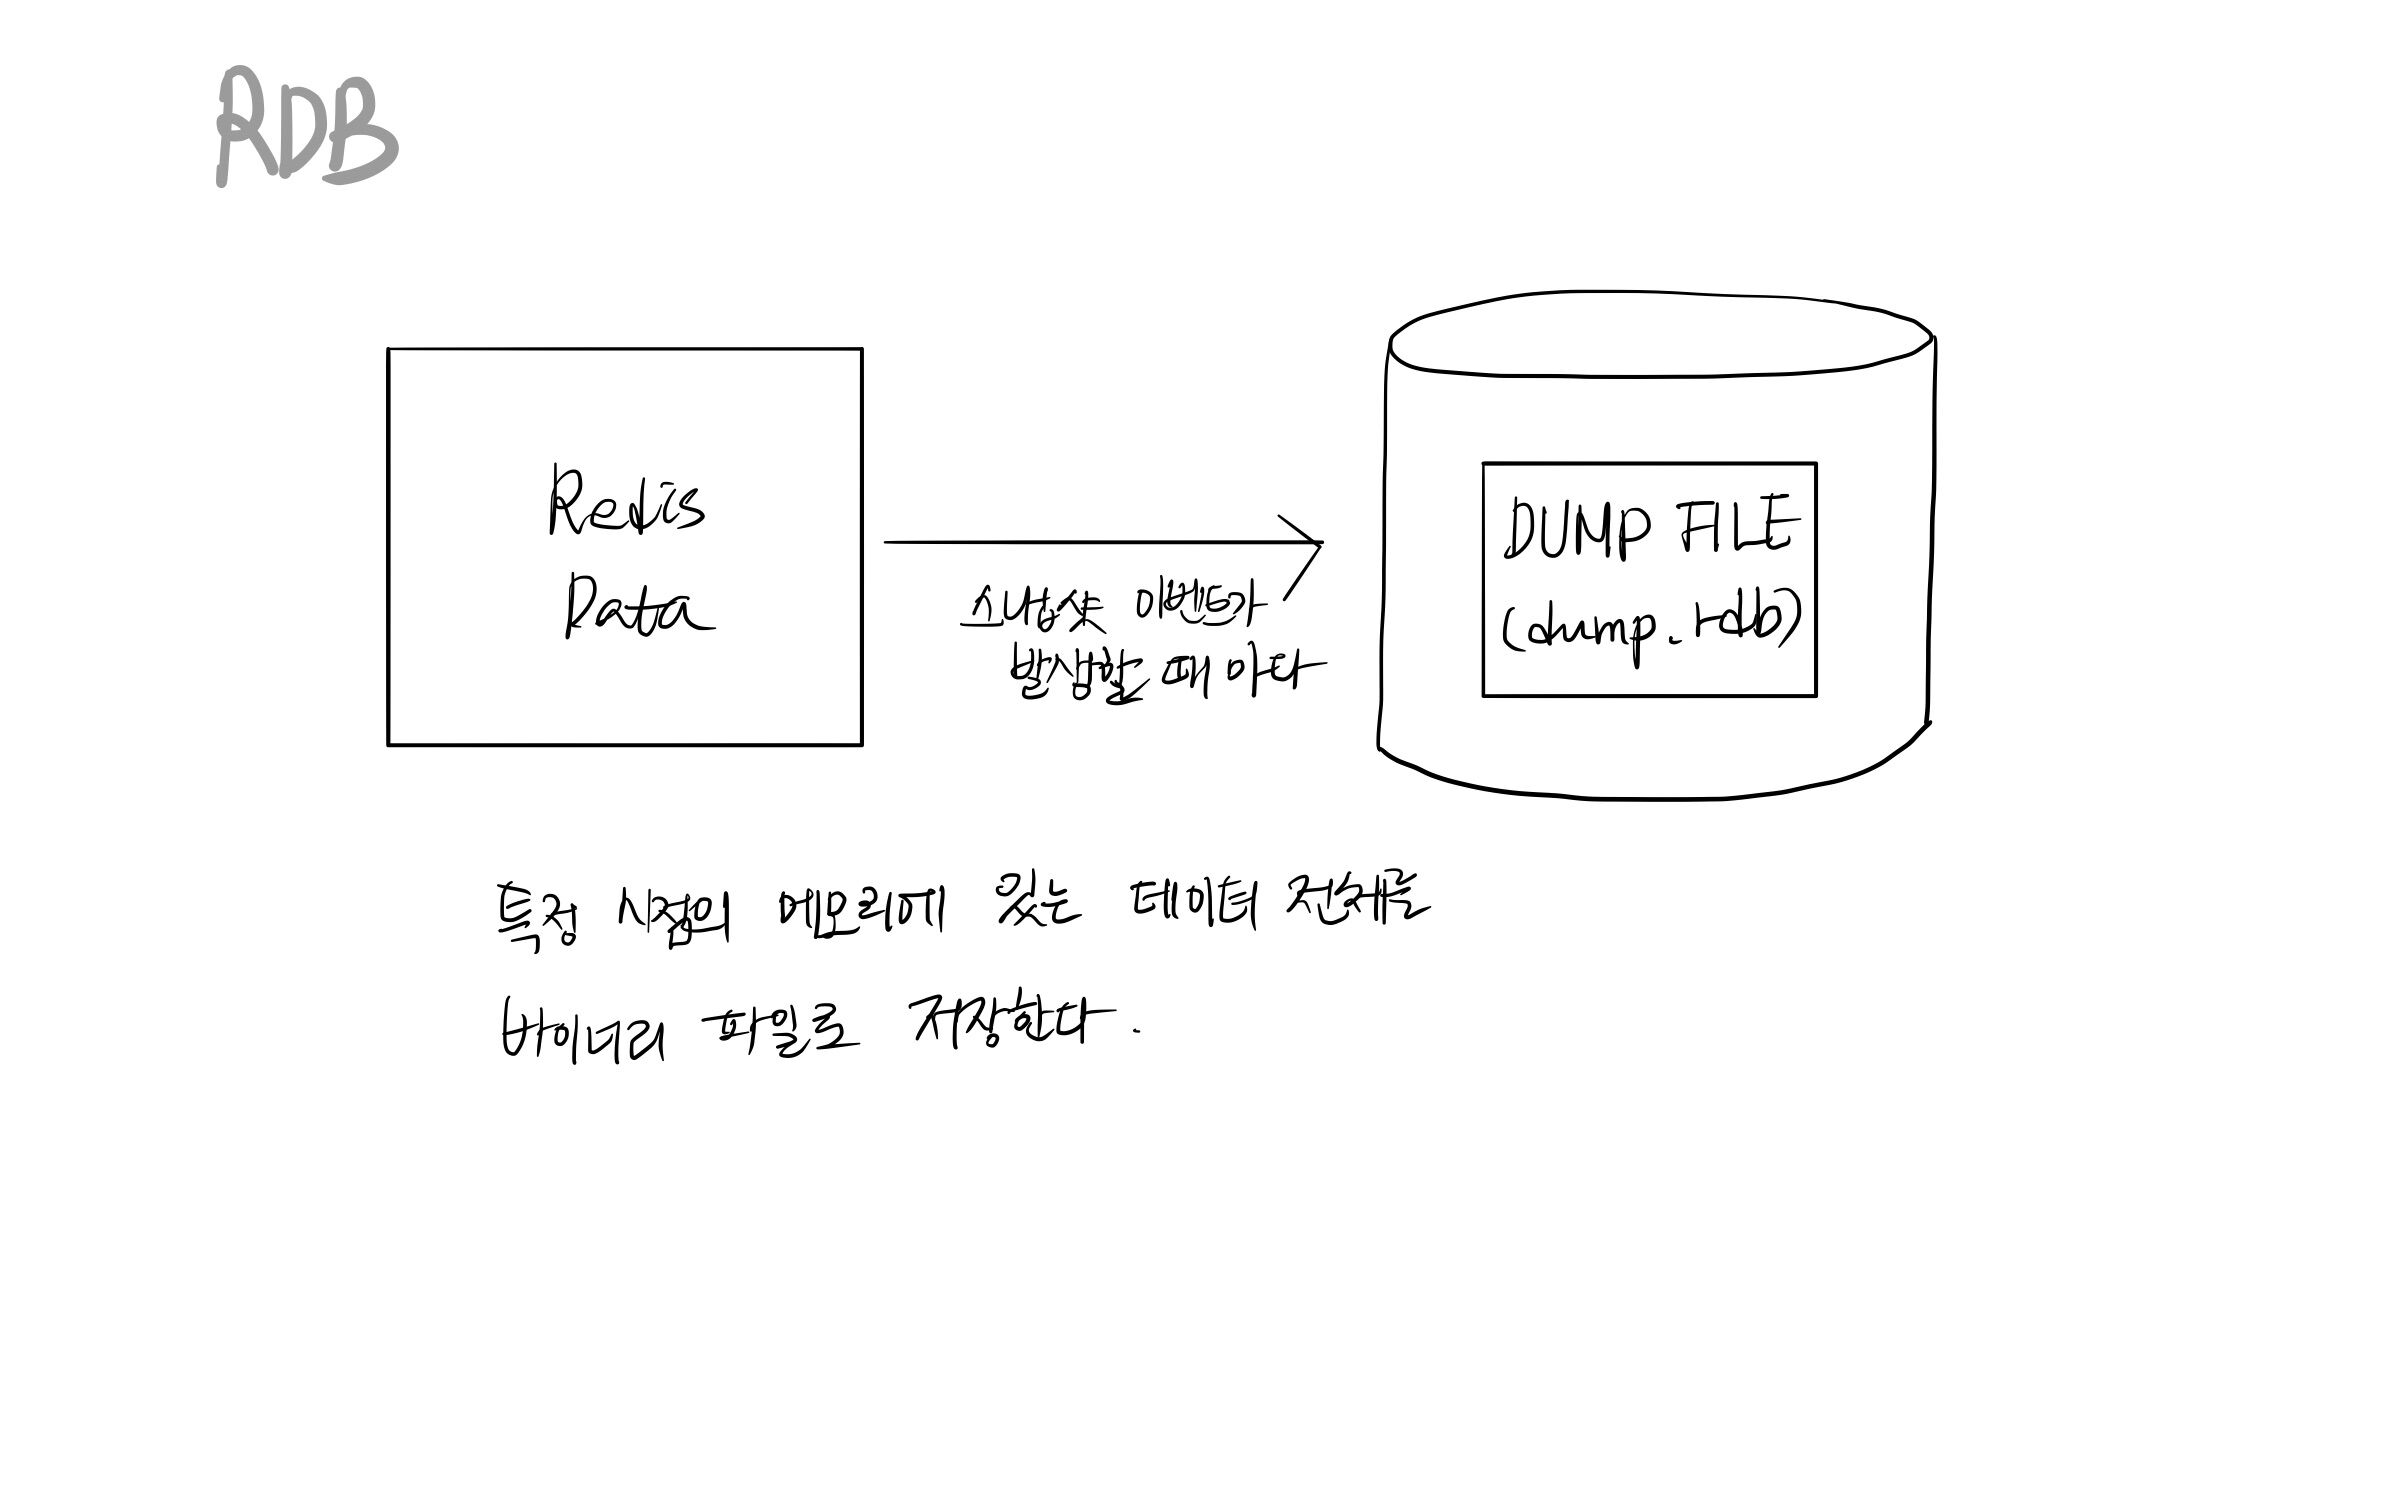 RDB
Redis
Data
스냅숏 이벤트가
발생할 때 마다
DUMP FILE
(dump.rdb)
특정 시점의 메모리에 있는 데이터 전체를
바이너리 파일로 저장한다.